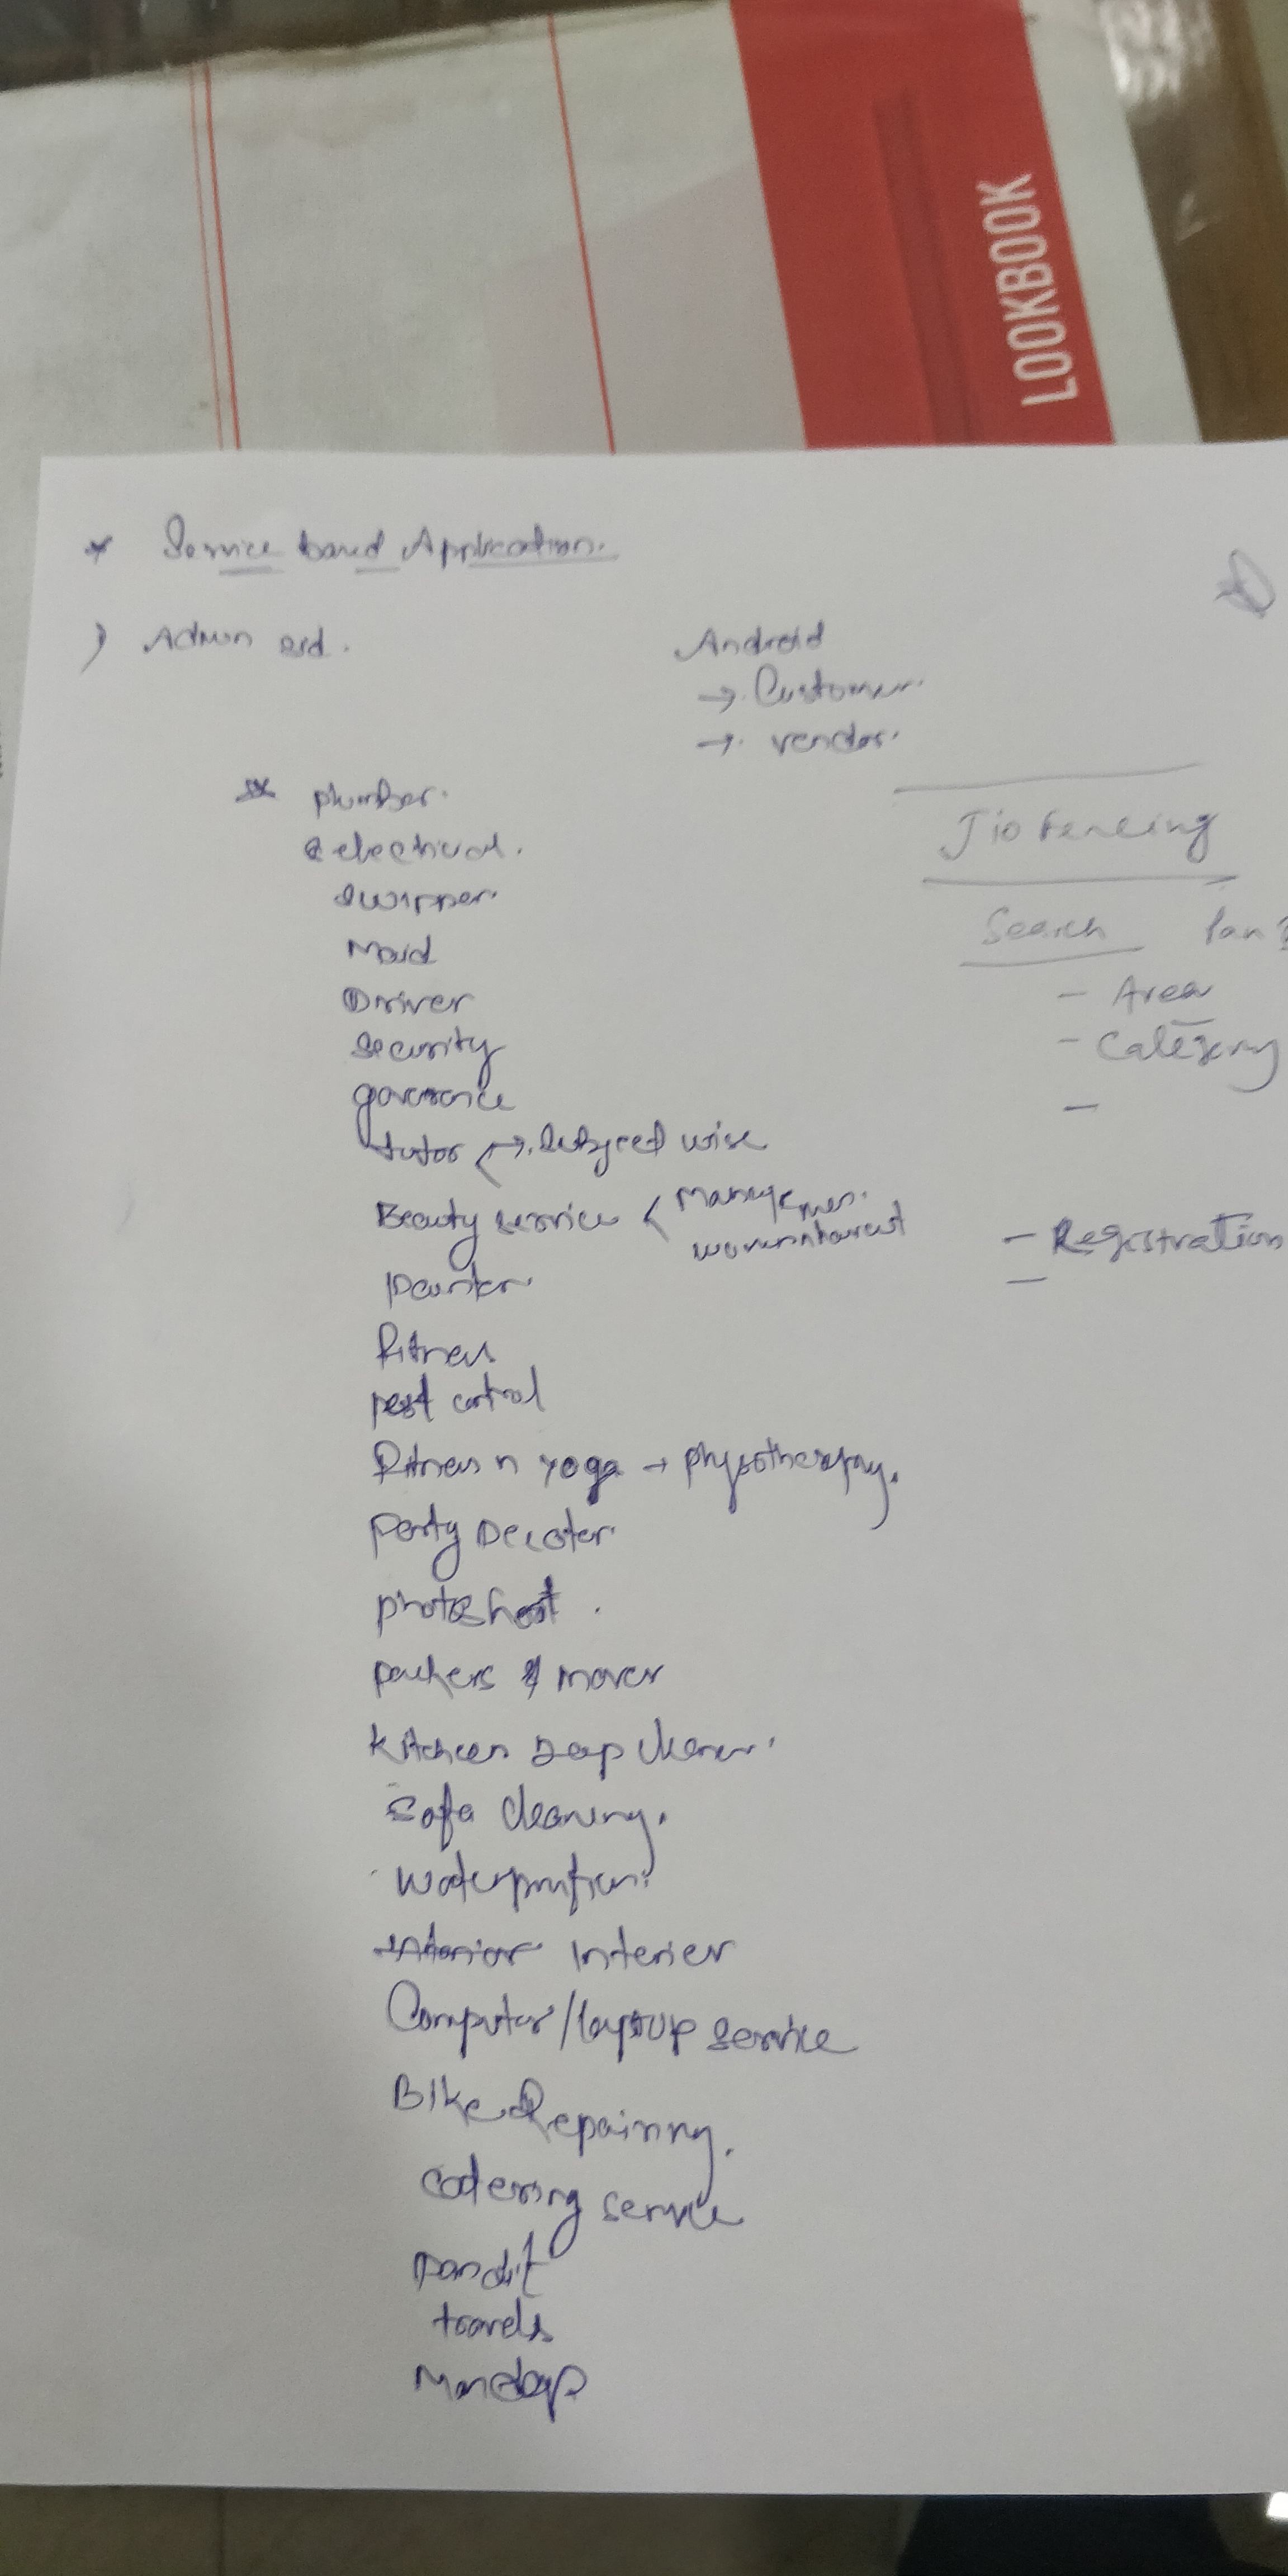 LOOKBOOK
* Service based Application.
) Admin end.
Android
→ Customer.
→ vendor.
* plumber.
electrical.
Maid
Driver
Security
tutor → Subject wise
Beauty service <
Painter
Fitness
pest control
Fitness n yoga → physotherapy.
Party Decoter
photoshoot.
packers & mover
Kitchen Deep cleaner.
Sofa cleaning.
Waterpurifier
Interior Interier
Computer/laptop service
Bike Repairing.
Catering service
Pandit
travels
Mandap
Jiofencing
Search
- Area
- Category
-
- Registration
-